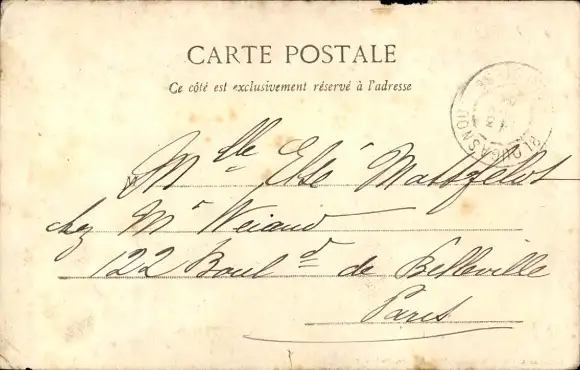 CARTE POSTALE
Ce côté est exclusivement réservé à l'adresse
Mlle Elsé
chez Mr Weiand
122 Bould de Belleville
Paris